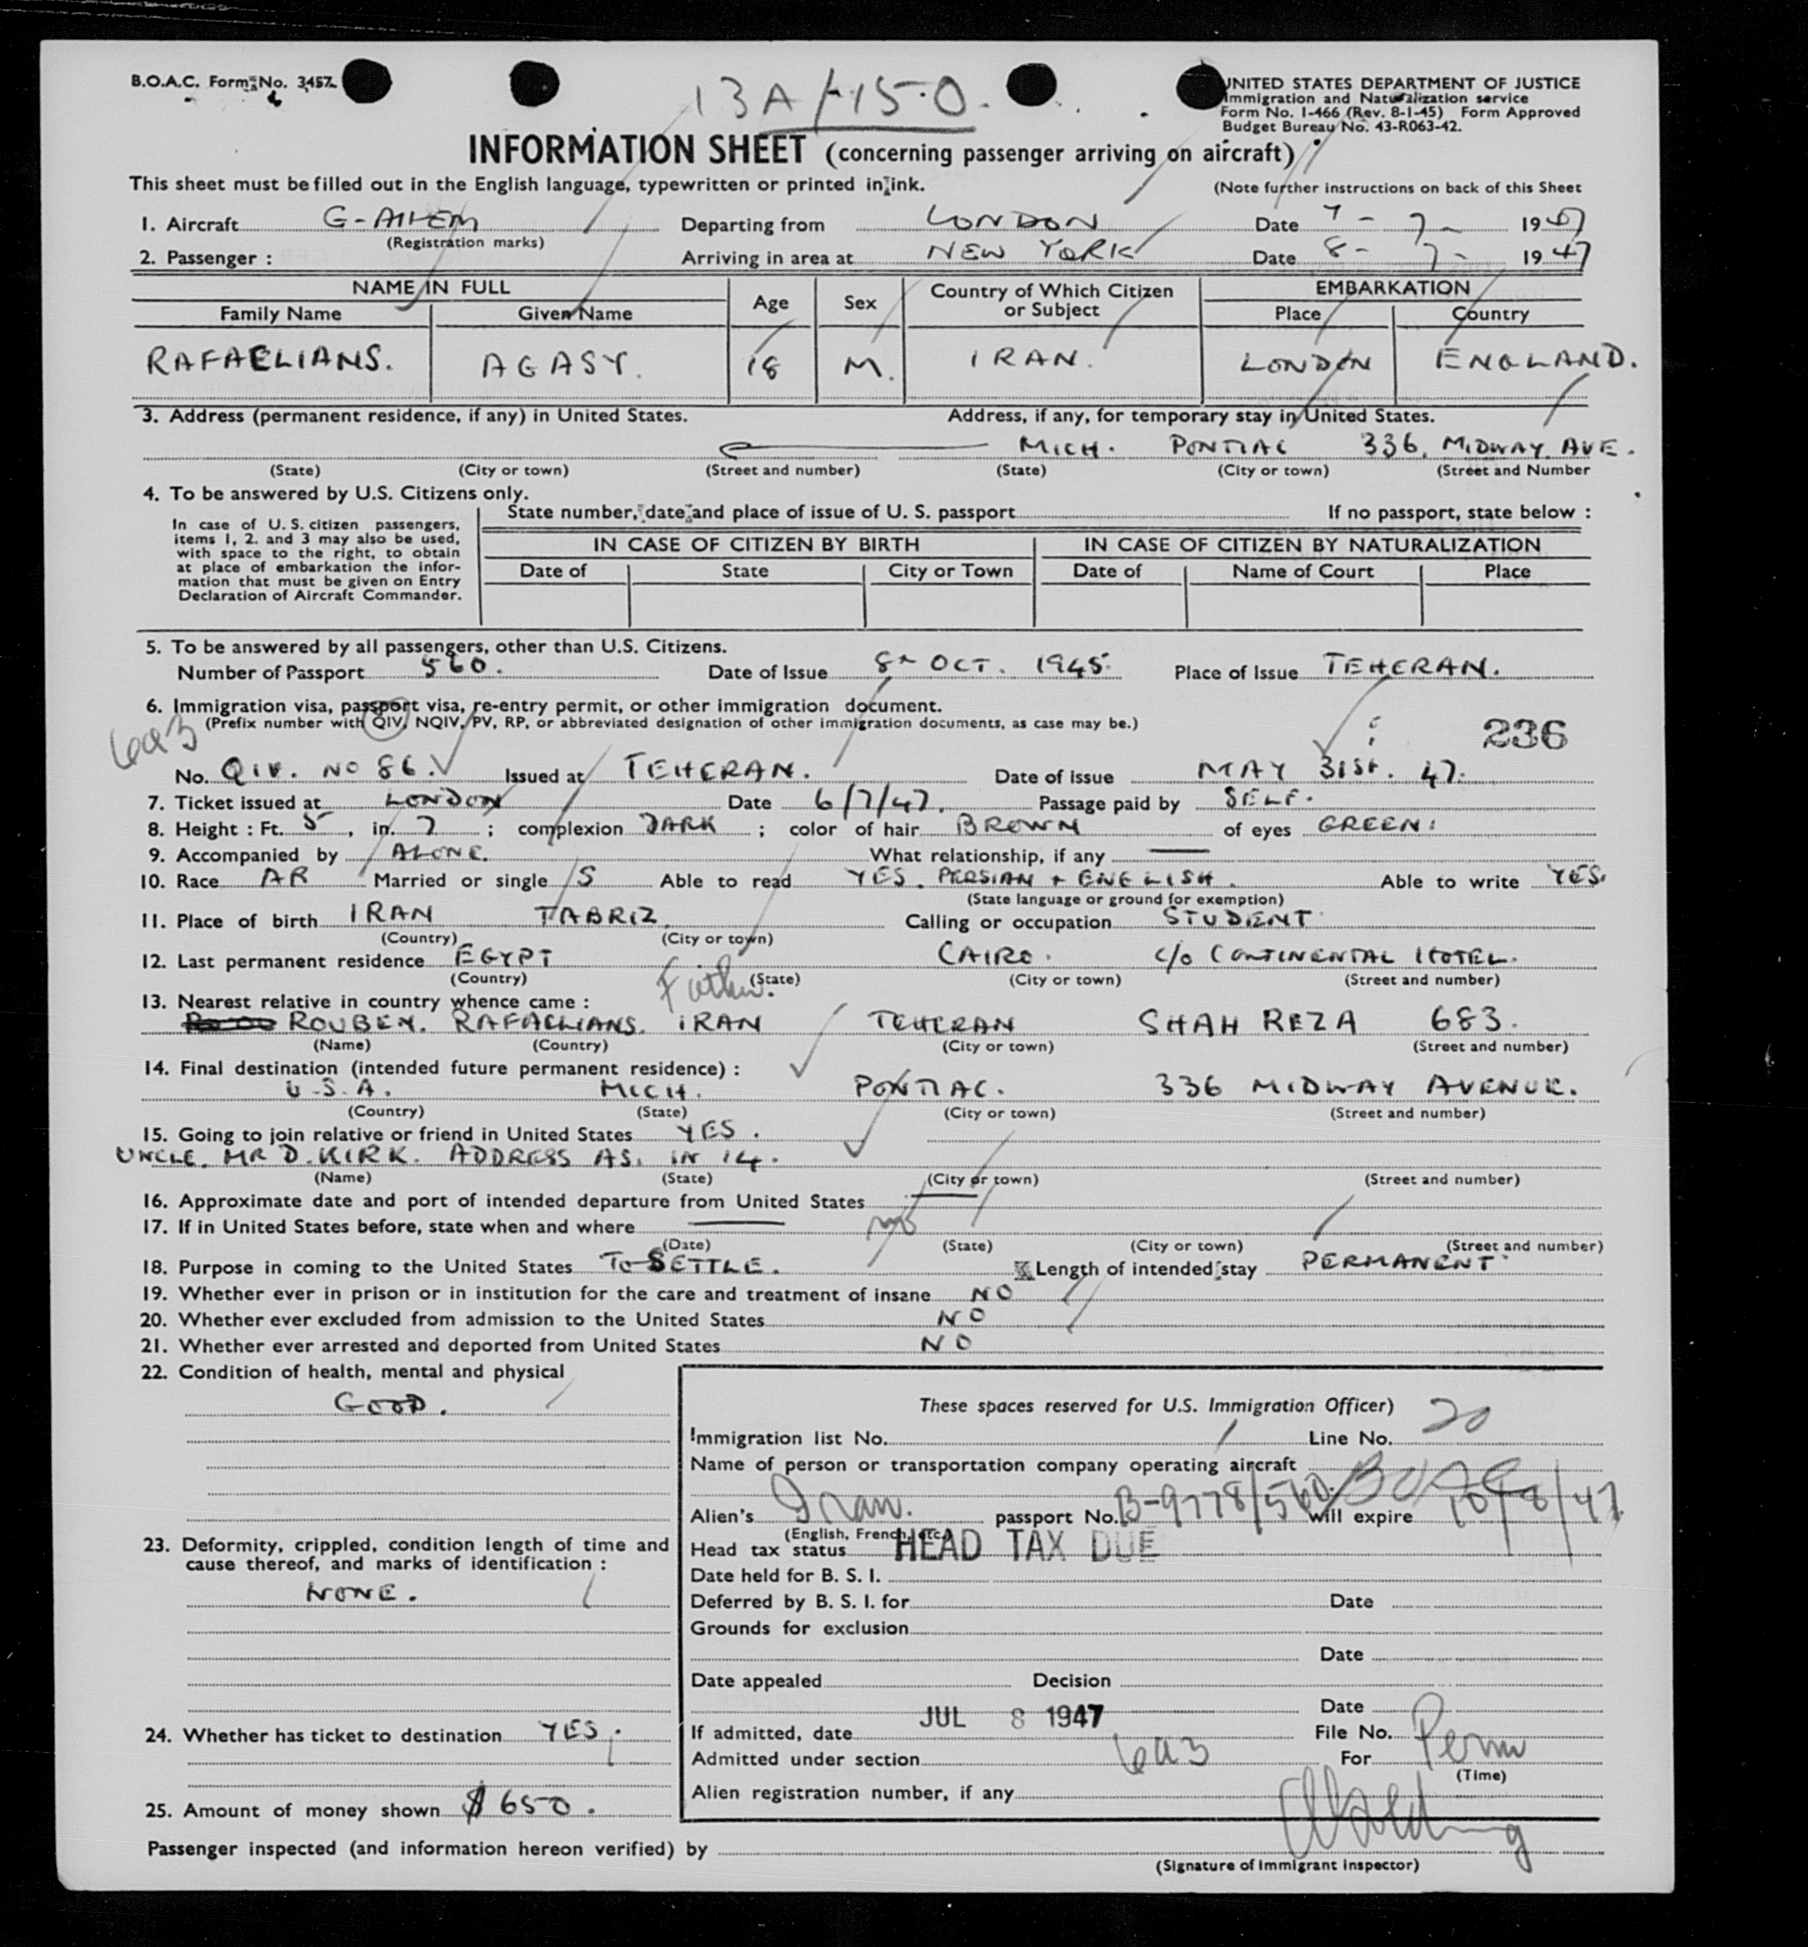 B.O.A.C. Form No. 3457
13A/-150.
UNITED STATES DEPARTMENT OF JUSTICE
Immigration and Naturalization service
Form No. I-466 (Rev. 8-1-45) Form Approved
Budget Bureau No. 43-R063-42.
INFORMATION SHEET (concerning passenger arriving on aircraft)
This sheet must be filled out in the English language, typewritten or printed in ink. (Note further instructions on back of this Sheet
1. Aircraft Departing from LONDON Date 7 - 7 - 1947
(Registration marks)
2. Passenger : Arriving in area at NEW YORK Date 8 - 7 - 1947
NAME IN FULL Age Sex Country of Which Citizen or Subject EMBARKATION
Family Name Given Name Place Country
RAFAELIANS. AGASY. 18 M. IRAN. LONDON ENGLAND.
3. Address (permanent residence, if any) in United States. Address, if any, for temporary stay in United States.
MICH. PONTIAC 336, MIDWAY AVE.
(State) (City or town) (Street and number) (State) (City or town) (Street and Number
4. To be answered by U.S. Citizens only.
In case of U. S. citizen passengers, items 1, 2. and 3 may also be used, with space to the right, to obtain at place of embarkation the information that must be given on Entry Declaration of Aircraft Commander.
State number, date and place of issue of U. S. passport If no passport, state below :
IN CASE OF CITIZEN BY BIRTH IN CASE OF CITIZEN BY NATURALIZATION
Date of State City or Town Date of Name of Court Place
5. To be answered by all passengers, other than U.S. Citizens.
Number of Passport 560. Date of Issue 8th OCT. 1945. Place of Issue TEHERAN.
6. Immigration visa, passport visa, re-entry permit, or other immigration document.
(Prefix number with QIV, NQIV, PV, RP, or abbreviated designation of other immigration documents, as case may be.)
6a3
236
No. QIV. NO 86. Issued at TEHERAN. Date of issue MAY 31st. 47.
7. Ticket issued at LONDON Date 6/7/47. Passage paid by SELF.
8. Height : Ft. 5 , in. 7 ; complexion DARK ; color of hair BROWN of eyes GREEN.
9. Accompanied by ALONE. What relationship, if any
10. Race AR Married or single S Able to read YES. PERSIAN + ENGLISH. Able to write YES.
(State language or ground for exemption)
11. Place of birth IRAN TABRIZ. Calling or occupation STUDENT
(Country) (City or town)
12. Last permanent residence EGYPT CAIRO. c/o CONTINENTAL HOTEL.
(Country) (State) (City or town) (Street and number)
Father.
13. Nearest relative in country whence came :
ROUBEN. RAFAELIANS. IRAN TEHERAN SHAH REZA 683.
(Name) (Country) (City or town) (Street and number)
14. Final destination (intended future permanent residence) :
U.S.A. MICH. PONTIAC. 336 MIDWAY AVENUE.
(Country) (State) (City or town) (Street and number)
15. Going to join relative or friend in United States YES.
UNCLE. MR D. KIRK. ADDRESS AS. IN 14.
(Name) (State) (City or town) (Street and number)
16. Approximate date and port of intended departure from United States
17. If in United States before, state when and where no
(Date) (State) (City or town) (Street and number)
18. Purpose in coming to the United States TO SETTLE. Length of intended stay PERMANENT
19. Whether ever in prison or in institution for the care and treatment of insane NO
20. Whether ever excluded from admission to the United States NO
21. Whether ever arrested and deported from United States NO
22. Condition of health, mental and physical
GOOD.
23. Deformity, crippled, condition length of time and cause thereof, and marks of identification :
NONE.
24. Whether has ticket to destination YES.
25. Amount of money shown $650.
These spaces reserved for U.S. Immigration Officer)
Immigration list No. Line No. 20
Name of person or transportation company operating aircraft BOAC
Alien's Iran. passport No. B-9778/560 will expire 10/8/47
(English, French, etc.)
Head tax status HEAD TAX DUE
Date held for B. S. I.
Deferred by B. S. I. for Date
Grounds for exclusion
Date
Date appealed Decision
Date
If admitted, date JUL 8 1947 File No.
Admitted under section 6a3 For Perm
(Time)
Alien registration number, if any
Passenger inspected (and information hereon verified) by
(Signature of Immigrant Inspector)